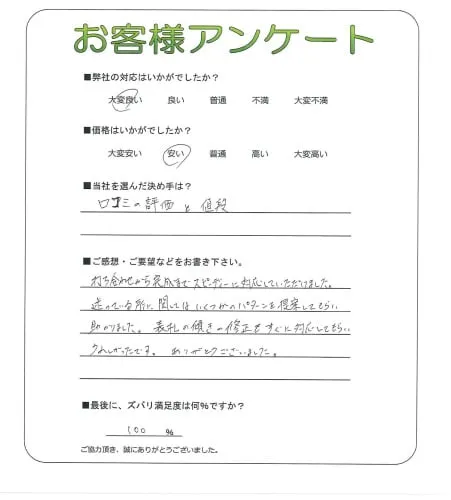 お客様アンケート
■弊社の対応はいかがでしたか？
大変良い 良い 普通 不満 大変不満
■価格はいかがでしたか？
大変安い 安い 普通 高い 大変高い
■当社を選んだ決め手は？
口コミの評価と値段
■ご感想・ご要望などをお書き下さい。
打ち合わせから完成までスピーディーに対応していただけました。
迷っている所に関してはいくつかのパターンを提案してもらい
助かりました。表札の傾きの修正もすぐに対応してもらい
うれしかったです。ありがとうございました。
■最後に、ズバリ満足度は何%ですか？
100 %
ご協力頂き、誠にありがとうございました。